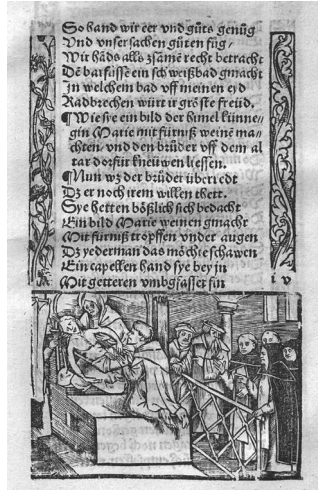 So hand wir eer vnd gůts genůg
Vnd vnser sachen gůten fůg /
Wir hãds alls zsamẽ recht betracht
Dẽ barfůssẽ ein sch weißbad gmacht
In welchem bad vff meinen eid
Radbrechen würt ir gröste freüd.
¶ Wie sye ein bild der himel künne-
gin Marie mit fürniß weinẽ ma-
chten vnd den brůder vff dem al
tar dorfür kneüwen liessen.
¶ Nun wz der brůder überredt
Dz er noch irem willen thett.
Sye hetten bößlich sich bedacht
Ein bild Marie weinen gmacht
Mit fürniß tropffen vnder augen
Dz yederman das möchte schawen
Ein capellen hand sye bey in
Mit getteren vmbgfasset sin
i v